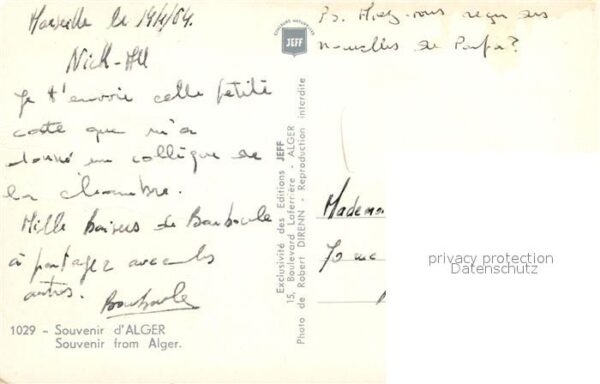 Marseille le 19/4/04.
Nick-All
Je t'envoie cette petite
carte que m'a
donné un collègue de
la chambre.
Mille baisers de Bouboule
à partager avec les
autres.
Bouboule
1029 - Souvenir d'ALGER
Souvenir from Alger.
COULEURS NATURELLES
JEFF
Exclusivité des Editions JEFF
15, Boulevard Laferrière - ALGER
Photo de Robert DIRENN - Reproduction interdite
Ps. Avez-vous reçu des
nouvelles de Papa?
Madem
privacy protection
Datenschutz